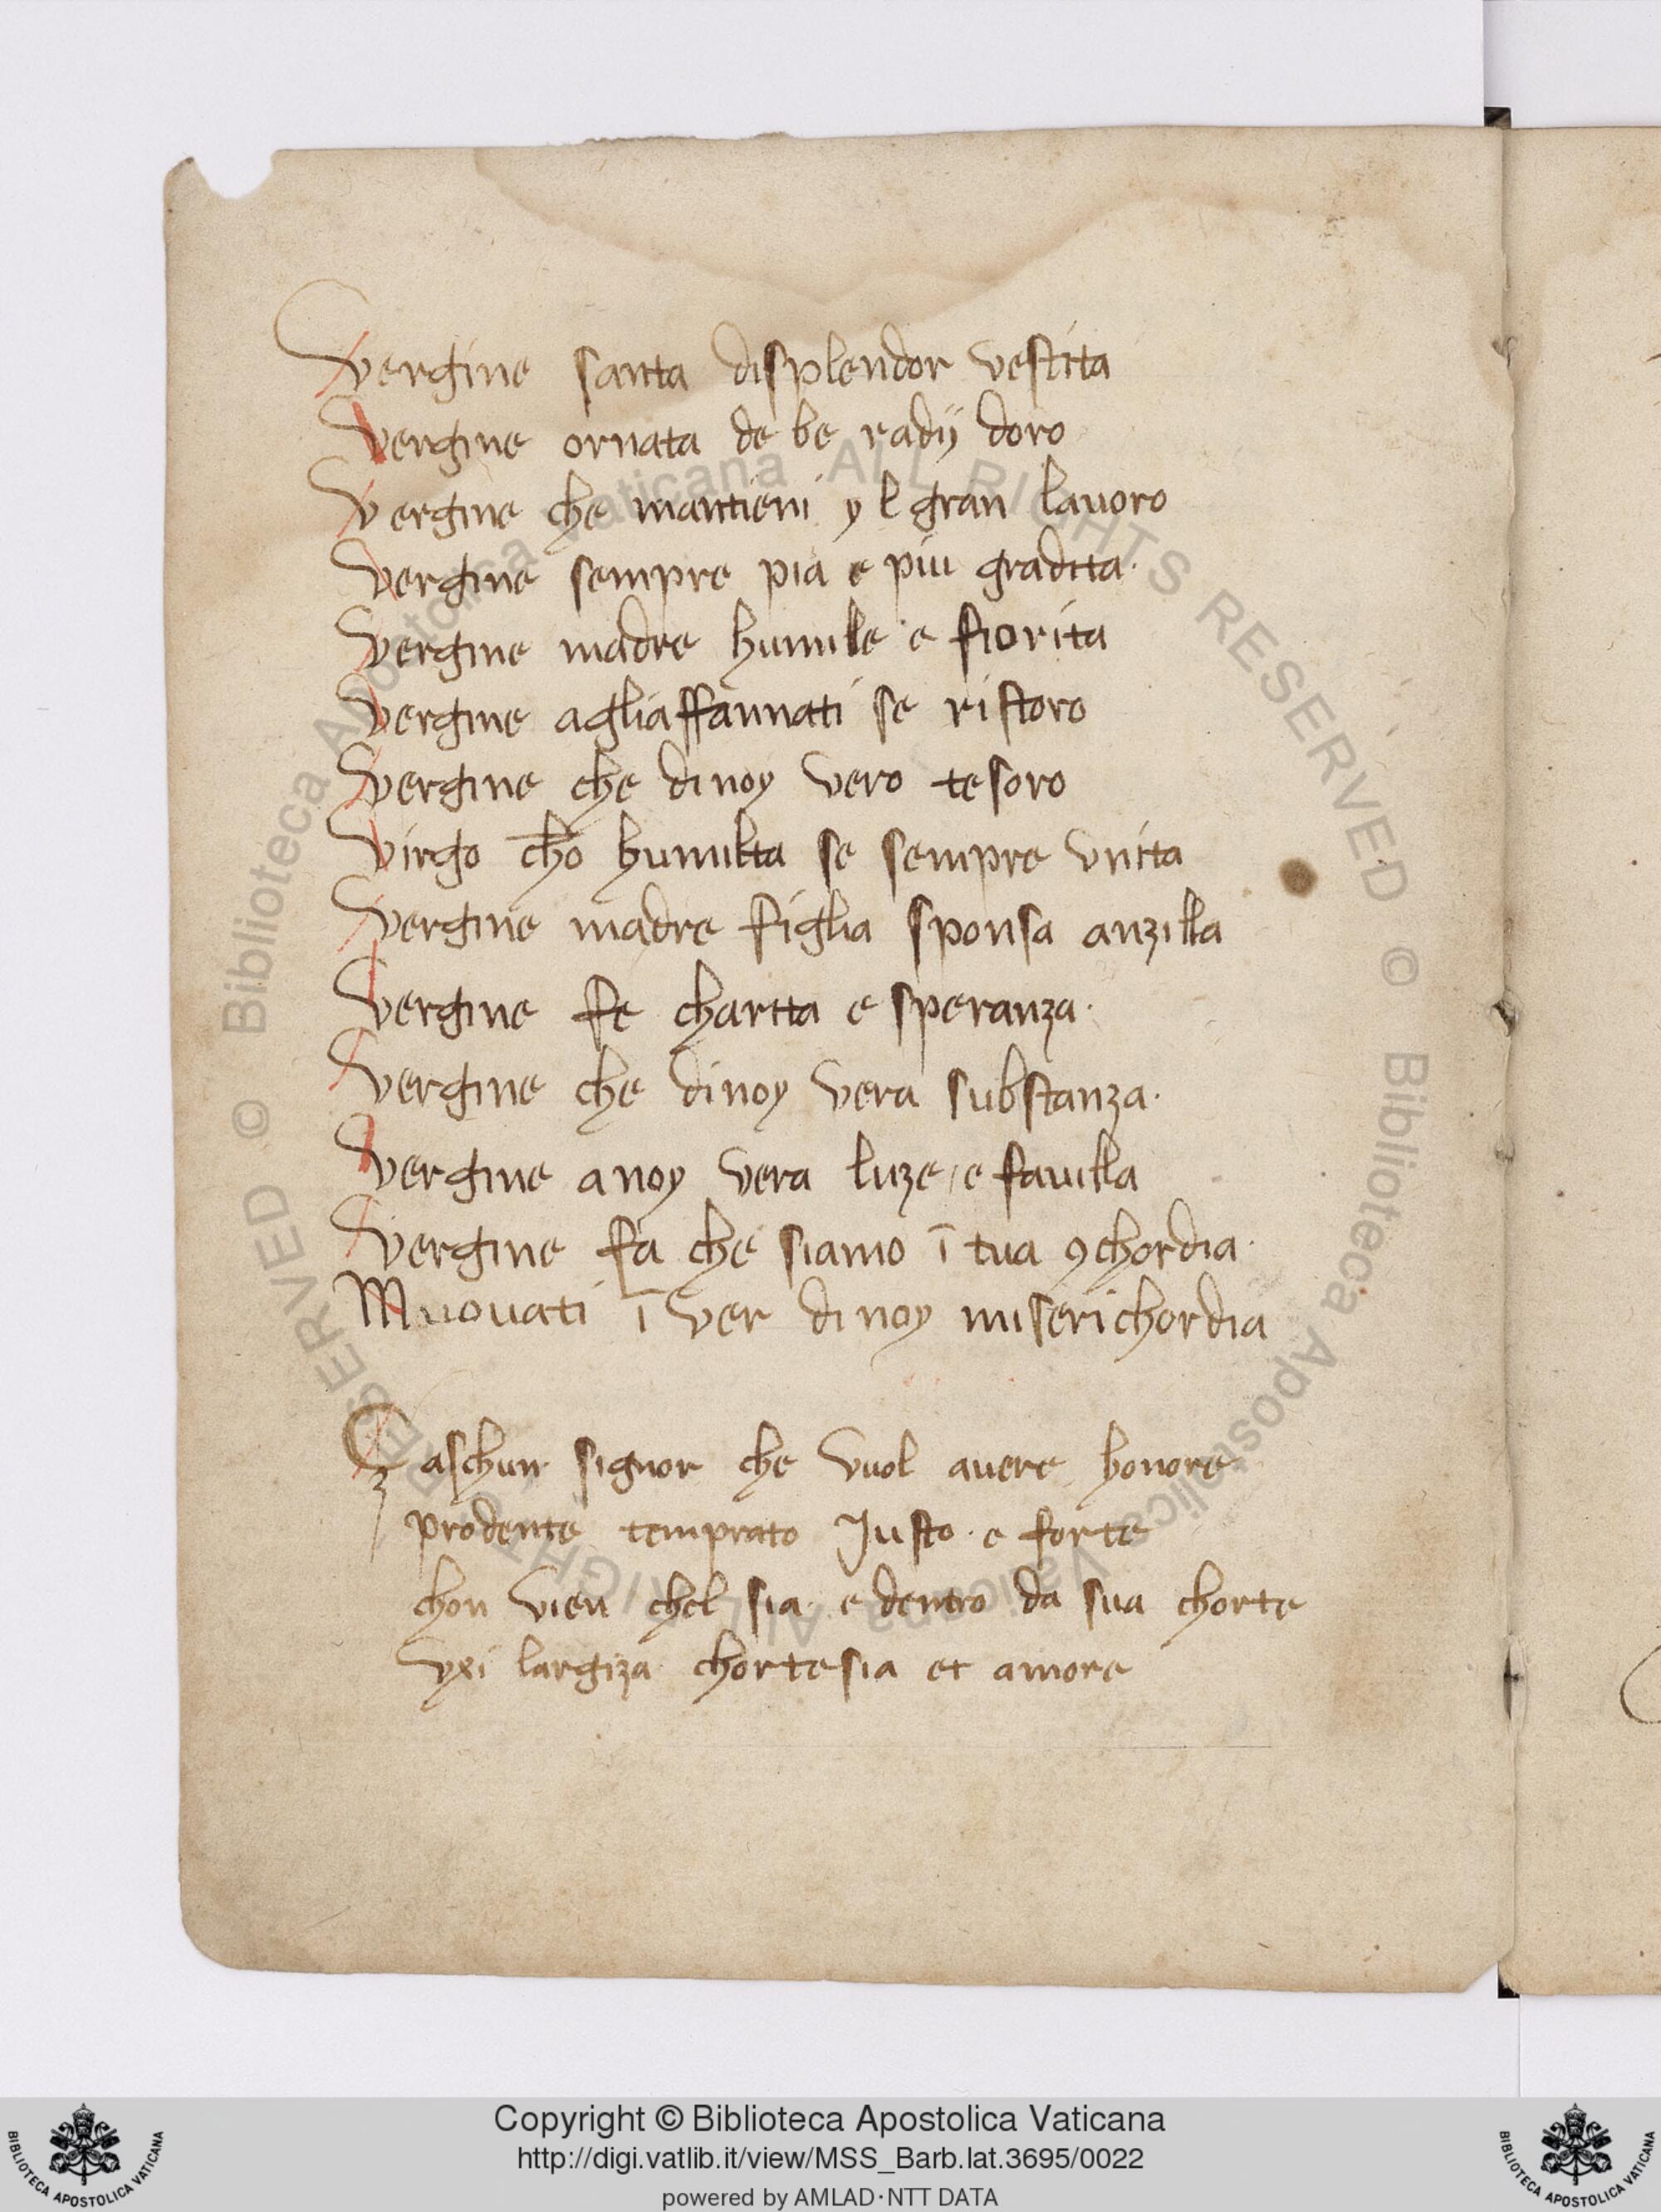 Vergine santa displendor vestita
Vergine ornata de be radij doro
Vergine che mantieni yl gran lauoro
Vergine sempre pia e piu gradita.
Vergine madre humile e fiorita
Vergine agliaffannati se ristoro
Vergine che di noy vero tesoro
Virgo cħo humilta se sempre vnita
Vergine madre figlia sponsa anzilla
Vergine fe charita e speranza.
Vergine che di noy vera substanza.
Vergine a noy vera luze e fauilla
Vergine fa che siamo ī tua ꝯchordia.
Muouati ī ver di noy miserichordia
Czaschun signor che vuol auere honore
prodente temprato Justo. e forte
chon vien chel sia. e dentro da sua chorte
vxi largiza chortesia et amore
© Biblioteca Apostolica Vaticana ALL RIGHTS RESERVED © Biblioteca Apostolica Vaticana ALL RIGHTS RESERVED
Copyright © Biblioteca Apostolica Vaticana
http://digi.vatlib.it/view/MSS_Barb.lat.3695/0022
powered by AMLAD·NTT DATA
BIBLIOTECA APOSTOLICA VATICANA
BIBLIOTECA APOSTOLICA VATICANA